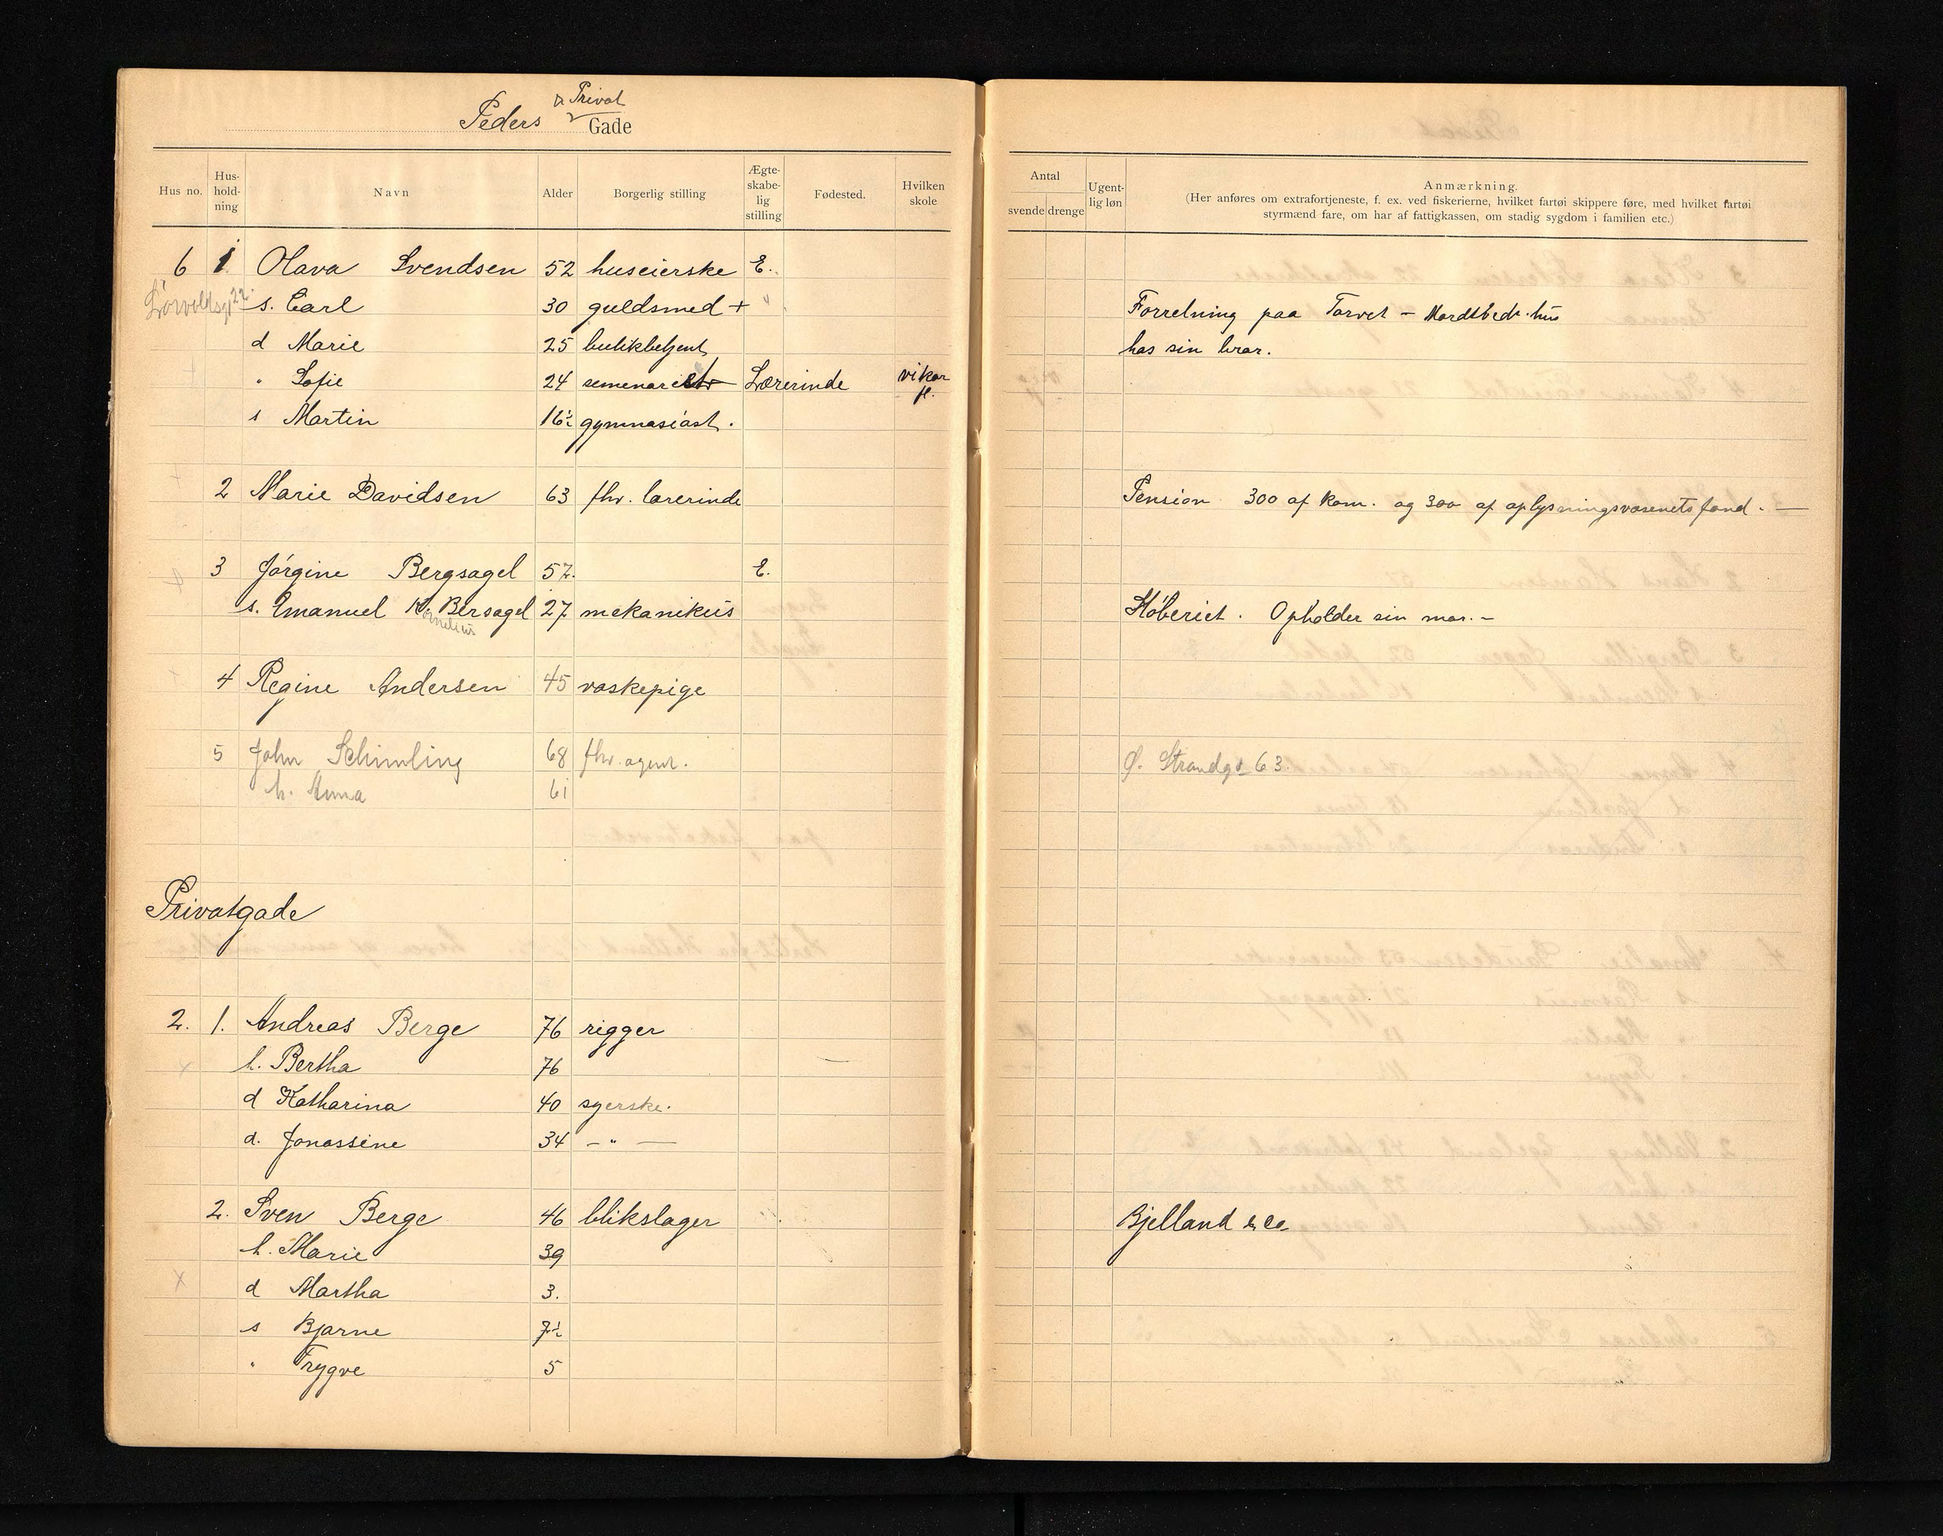 Peders & Privat Gade
Hus no. Hus-hold-ning Navn Alder Borgerlig stilling Ægte-skabe-lig stilling Fødested. Hvilken skole
Antal svende drenge Ugent-lig løn Anmærkning.
(Her anføres om extrafortjeneste, f. ex. ved fiskerierne, hvilket fartøi skippere føre, med hvilket fartøi
styrmænd fare, om har af fattigkassen, om stadig sygdom i familien etc.)
6 1 Olava Svendsen 52 huseierske E.
s. Carl 30 guldsmed + Forretning paa Torvet –
d Marie 25 butikbetjent hos sin bror.
" Sofie 24 Lærerinde vikar
s Martin 16½ gymnasiast.
2 Marie Davidsen 63 fhv. lærerinde Pension 300 af kom. og 300 af oplysningsvæsenets fond. —
3 Jørgine Bergsagel 57. E.
s. Emanuel K. Bersagel 27 mekanikus Støberiet. Opholder sin mor. –
Kornelius
4 Regine Andersen 45 vaskepige
5 John Schimling 68 fhv. agent. Ø. Strandgt 63.
h. Anna 61
Privatgade
2. 1. Andreas Berge 76 rigger
h. Bertha 76
d Katharina 40 syerske.
d. Jonassine 34 – " —
2. Sven Berge 46 blikslager Bjelland & Co
h. Marie 39
d Martha 3.
s Bjarne 7½
" Trygve 5